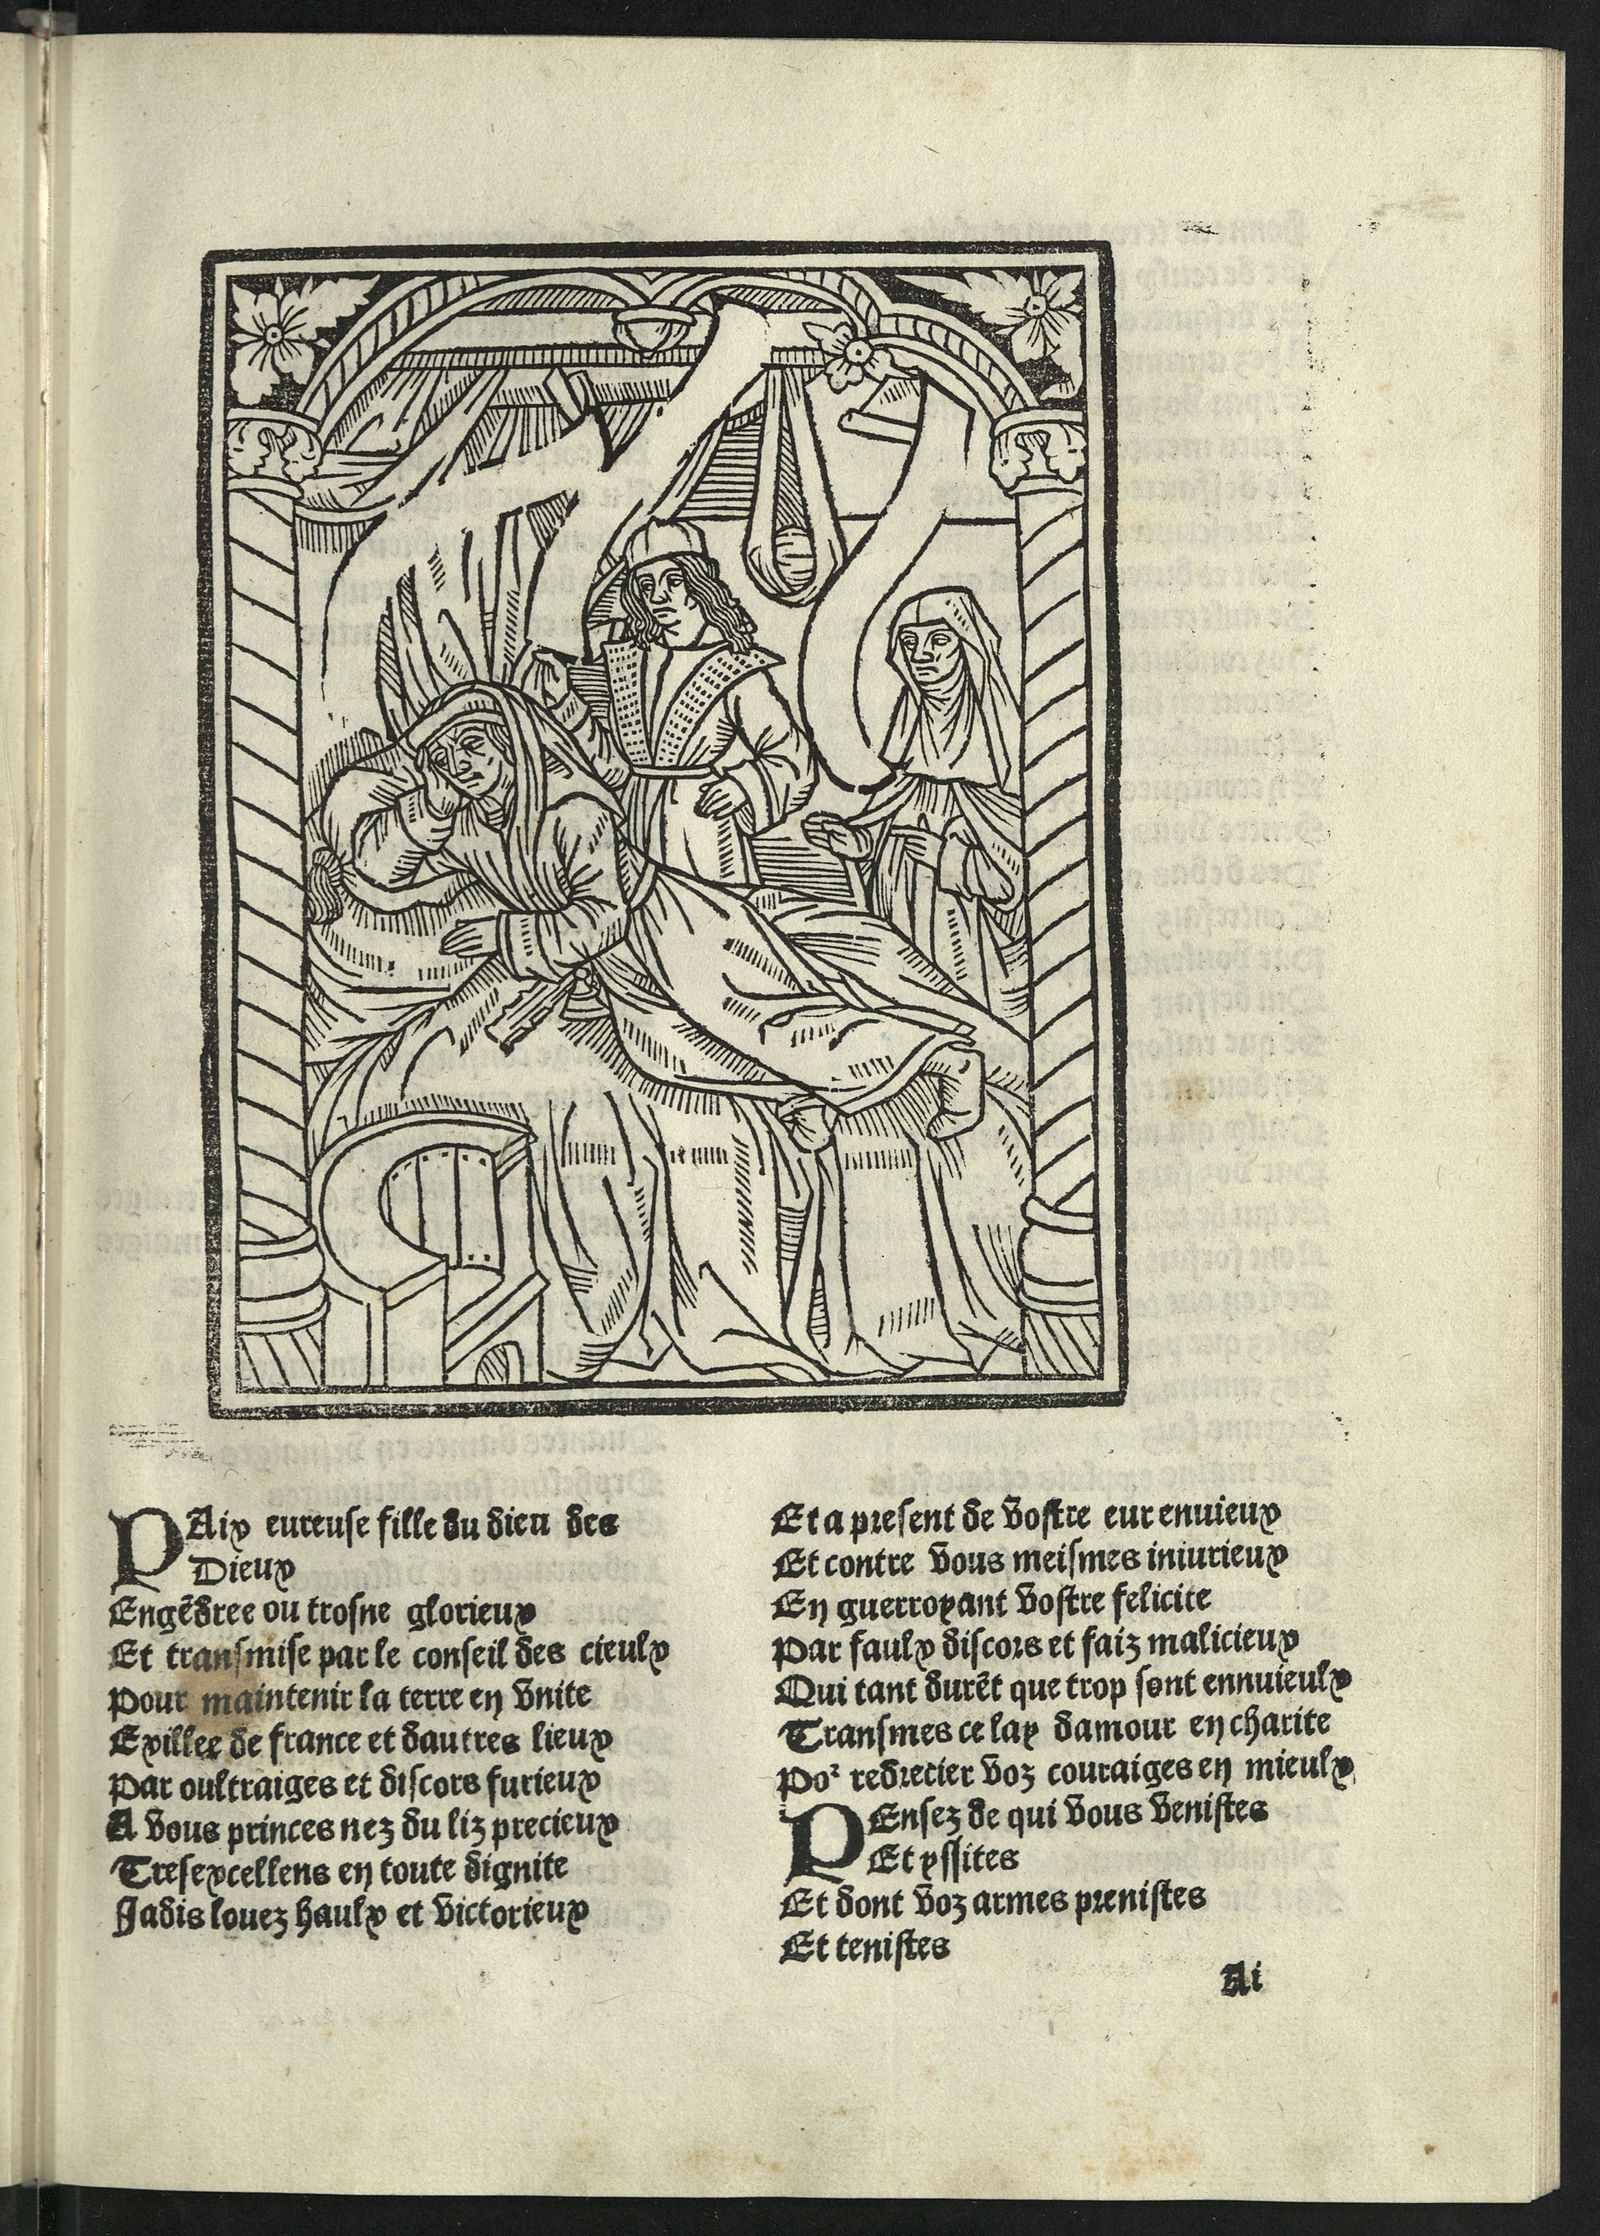 PAix eureuse fille du dieu des
Dieux
Engēdree ou trosne glorieux
Et transmise par le conseil des cieulx
Pour maintenir la terre en vnite
Exillee de france et dautres lieux
Par oultraiges et discors furieux
A vous princes nez du liz precieux
Tresexcellens en toute dignite
Jadis louez haulx et victorieux
Et a present de vostre eur enuieux
Et contre vous meismes iniurieux
En guerroyant vostre felicite
Par faulx discors et faiz malicieux
Qui tant durēt que trop sont ennuieulx
Transmes ce lay damour en charite
Poꝛ redrecier voz couraiges en mieulx
PEnsez de qui vous venistes
Et yssites
Et dont voz armes prenistes
Et tenistes
Ai